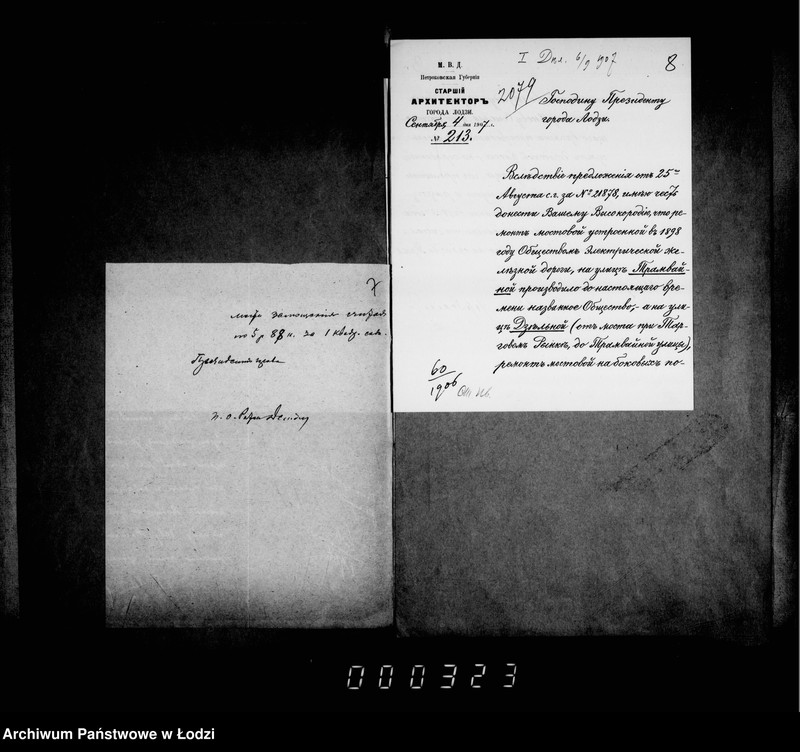 7
по 5 р 88 к. за 1 квадр. саж.
I Деп. 6/9 1907
8
М. В. Д.
Петроковская Губернія
СТАРШІЙ
АРХИТЕКТОРЪ
ГОРОДА ЛОДЗИ.
Сентября 4 дня 1907 г.
№ 213.
2079
Господину Президенту
города Лодзи.
Вслѣдствіе предложенія отъ 25-го
Августа с.г. за № 21878, имѣю честь
донести Вашему Высокородію, что ре-
монтъ мостовой устроенной въ 1898
году Обществомъ Электрической же-
лѣзной дороги, на улицѣ Трамвай-
ной производило до настоящаго вре-
мени названное Общество,- а на ули-
цѣ Дзѣльной (отъ моста при Тар-
говомъ Рынкѣ, до Трамвайной улицы),
ремонтъ мостовой на боковыхъ по-
60
1906
000323
Archiwum Państwowe w Łodzi